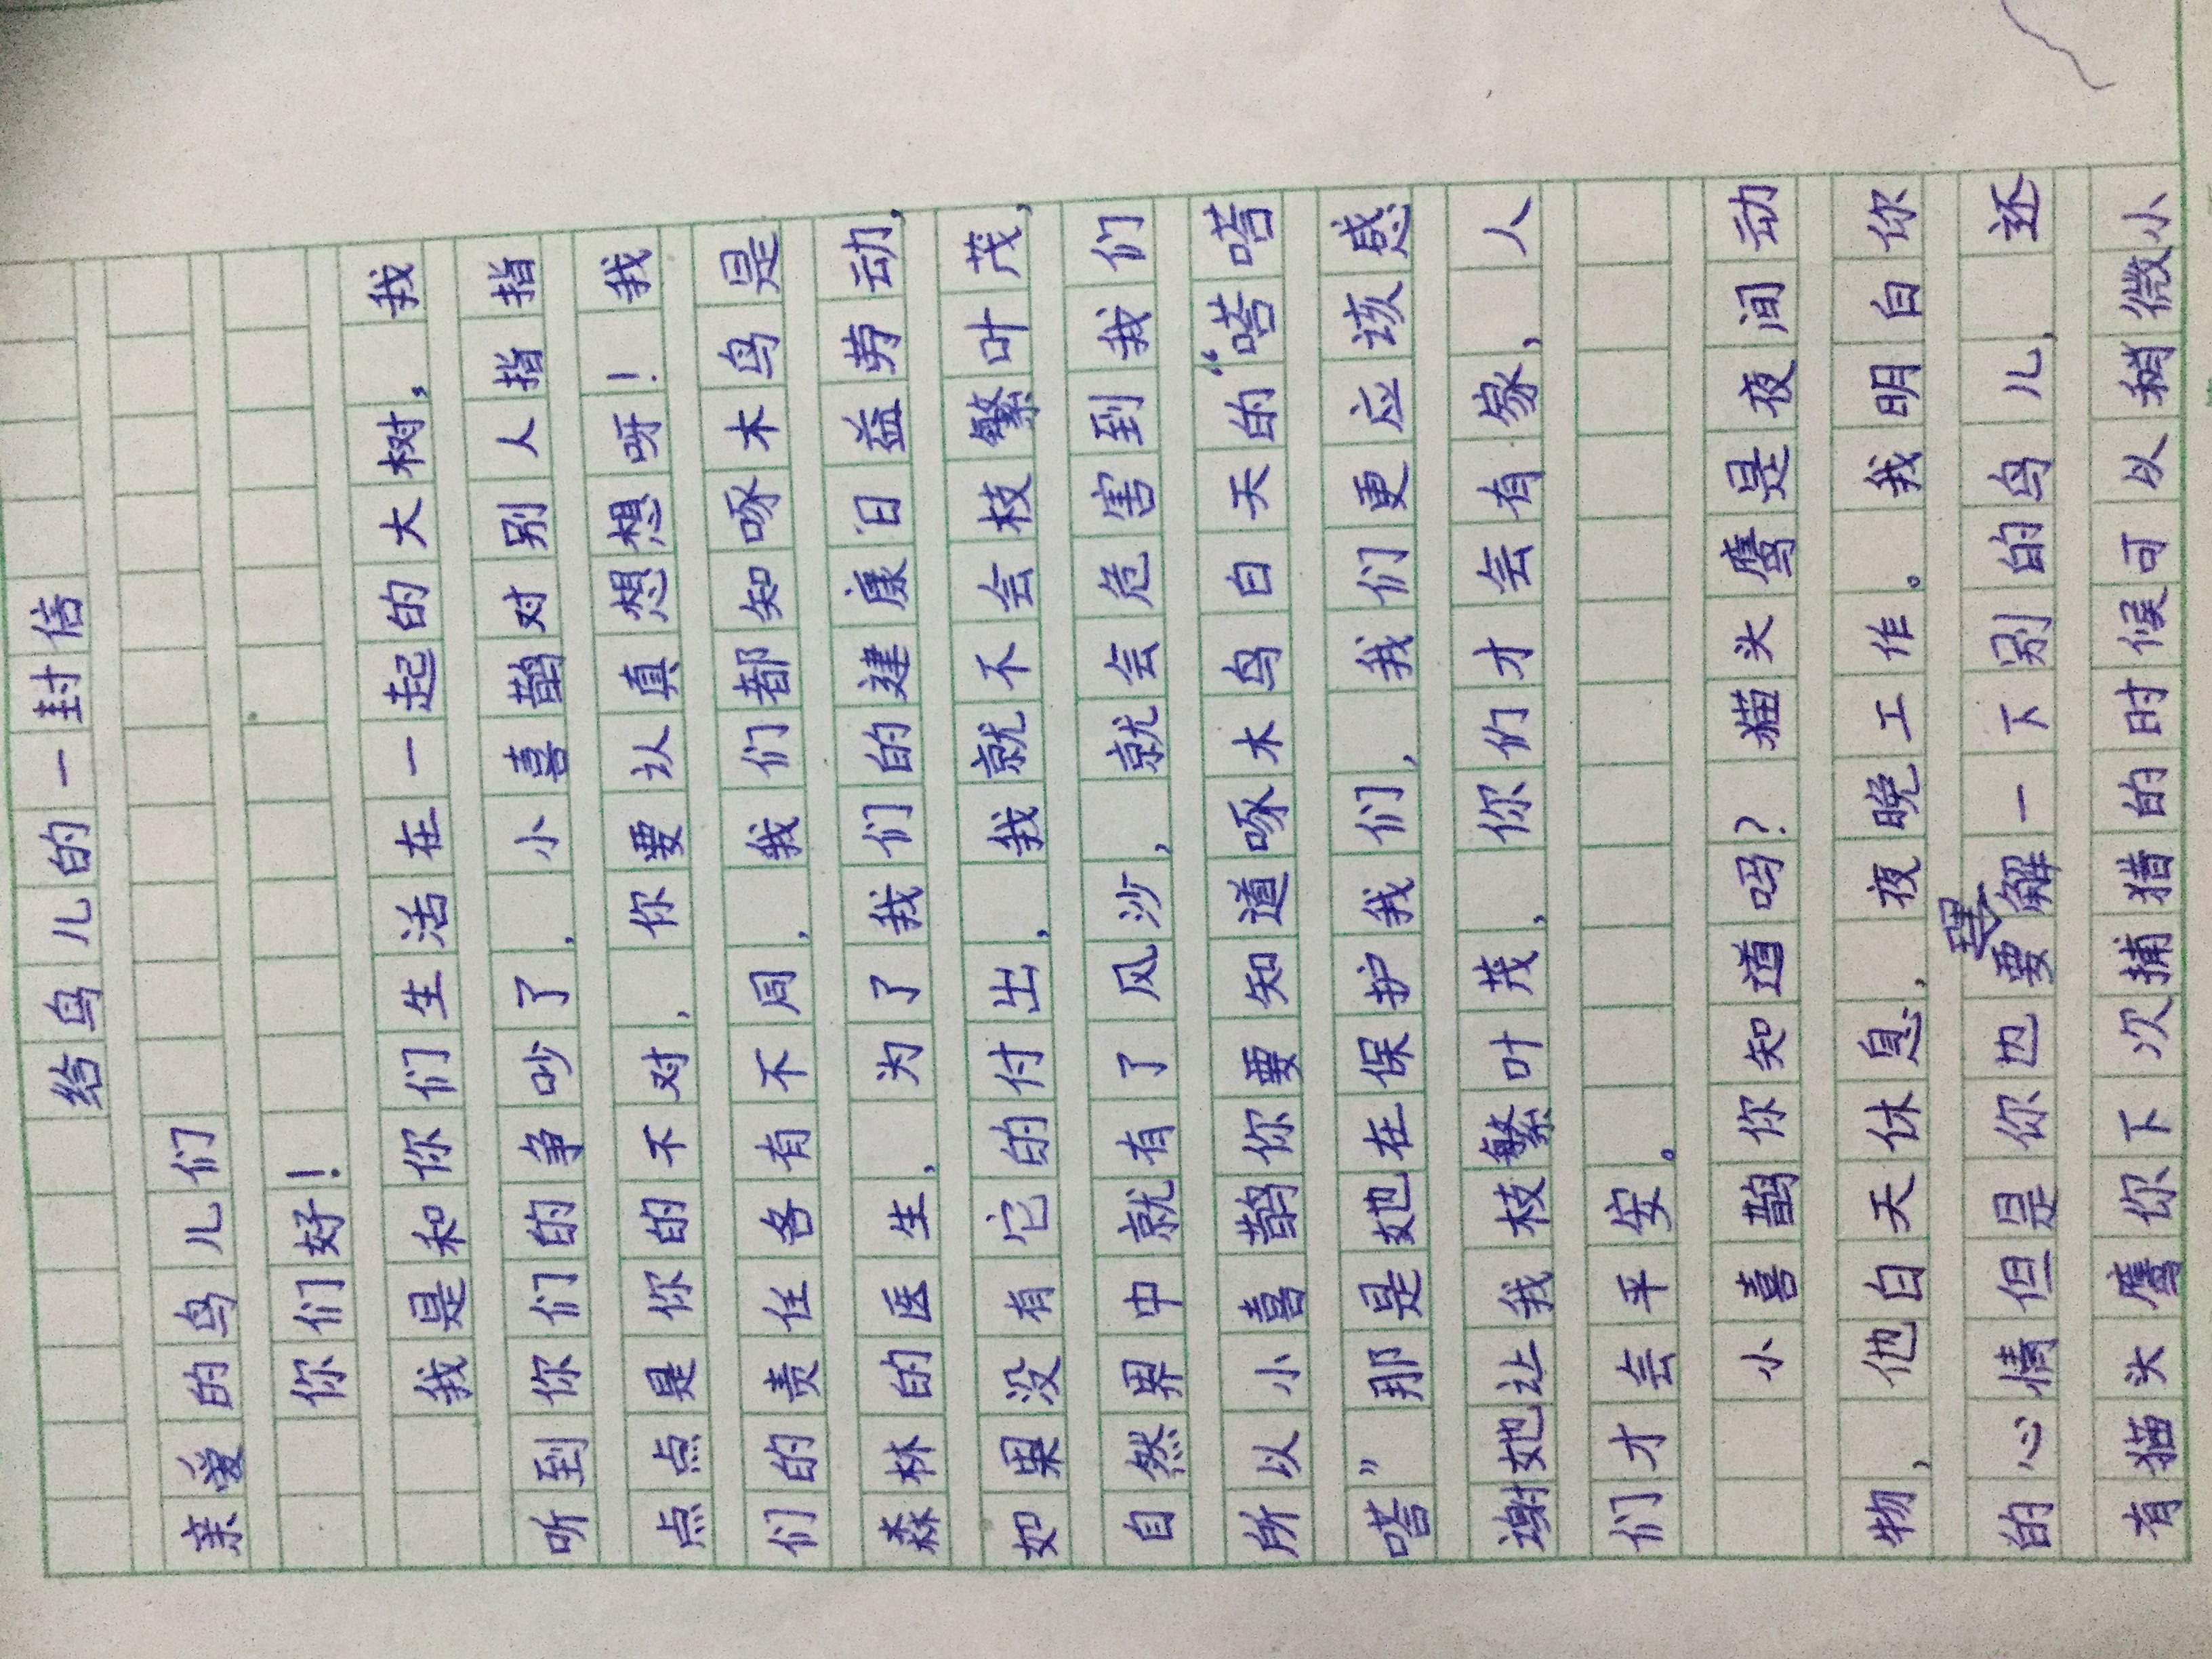 给鸟儿的一封信
亲爱的鸟儿们
你们好！
我是和你们生活在一起的大树，我
听到你们的争吵了，小喜鹊对别人指指
点点是你的不对，你要认真想想呀！我
们的责任各有不同，我们都知啄木鸟是
森林的医生，为了我们的建康日益劳动，
如果没有它的付出，我就不会枝繁叶茂，
自然界中就有了风沙，就会危害到我们
所以小喜鹊你要知道啄木鸟白天的“嗒嗒
嗒”那是她在保护我们，我们更应该感
谢她让我枝繁叶茂，你们才会有家，人
们才会平安。
小喜鹊你知道吗？猫头鹰是夜间动
物，他白天休息，夜晚工作。我明白你
的心情但是你也要理解一下别的鸟儿，还
有猫头鹰你下次捕猎的时候可以稍微小